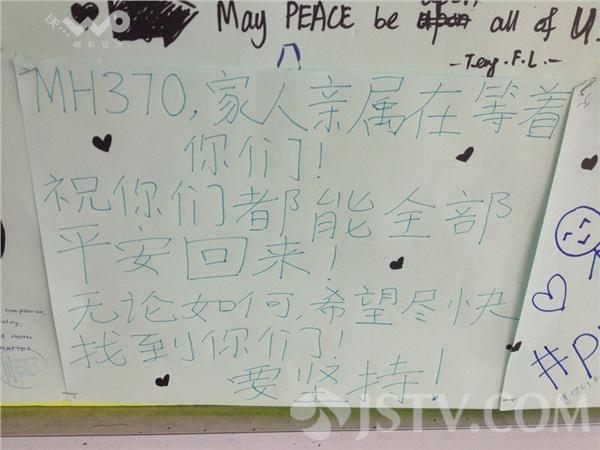 May PEACE be upon all of U.
-Teng.F.L.-
MH370,家人亲属在等着
你们!
祝你们都能全部
平安回来!
无论如何,希望尽快
找到你们!
要坚持!
#P
JSTV.COM